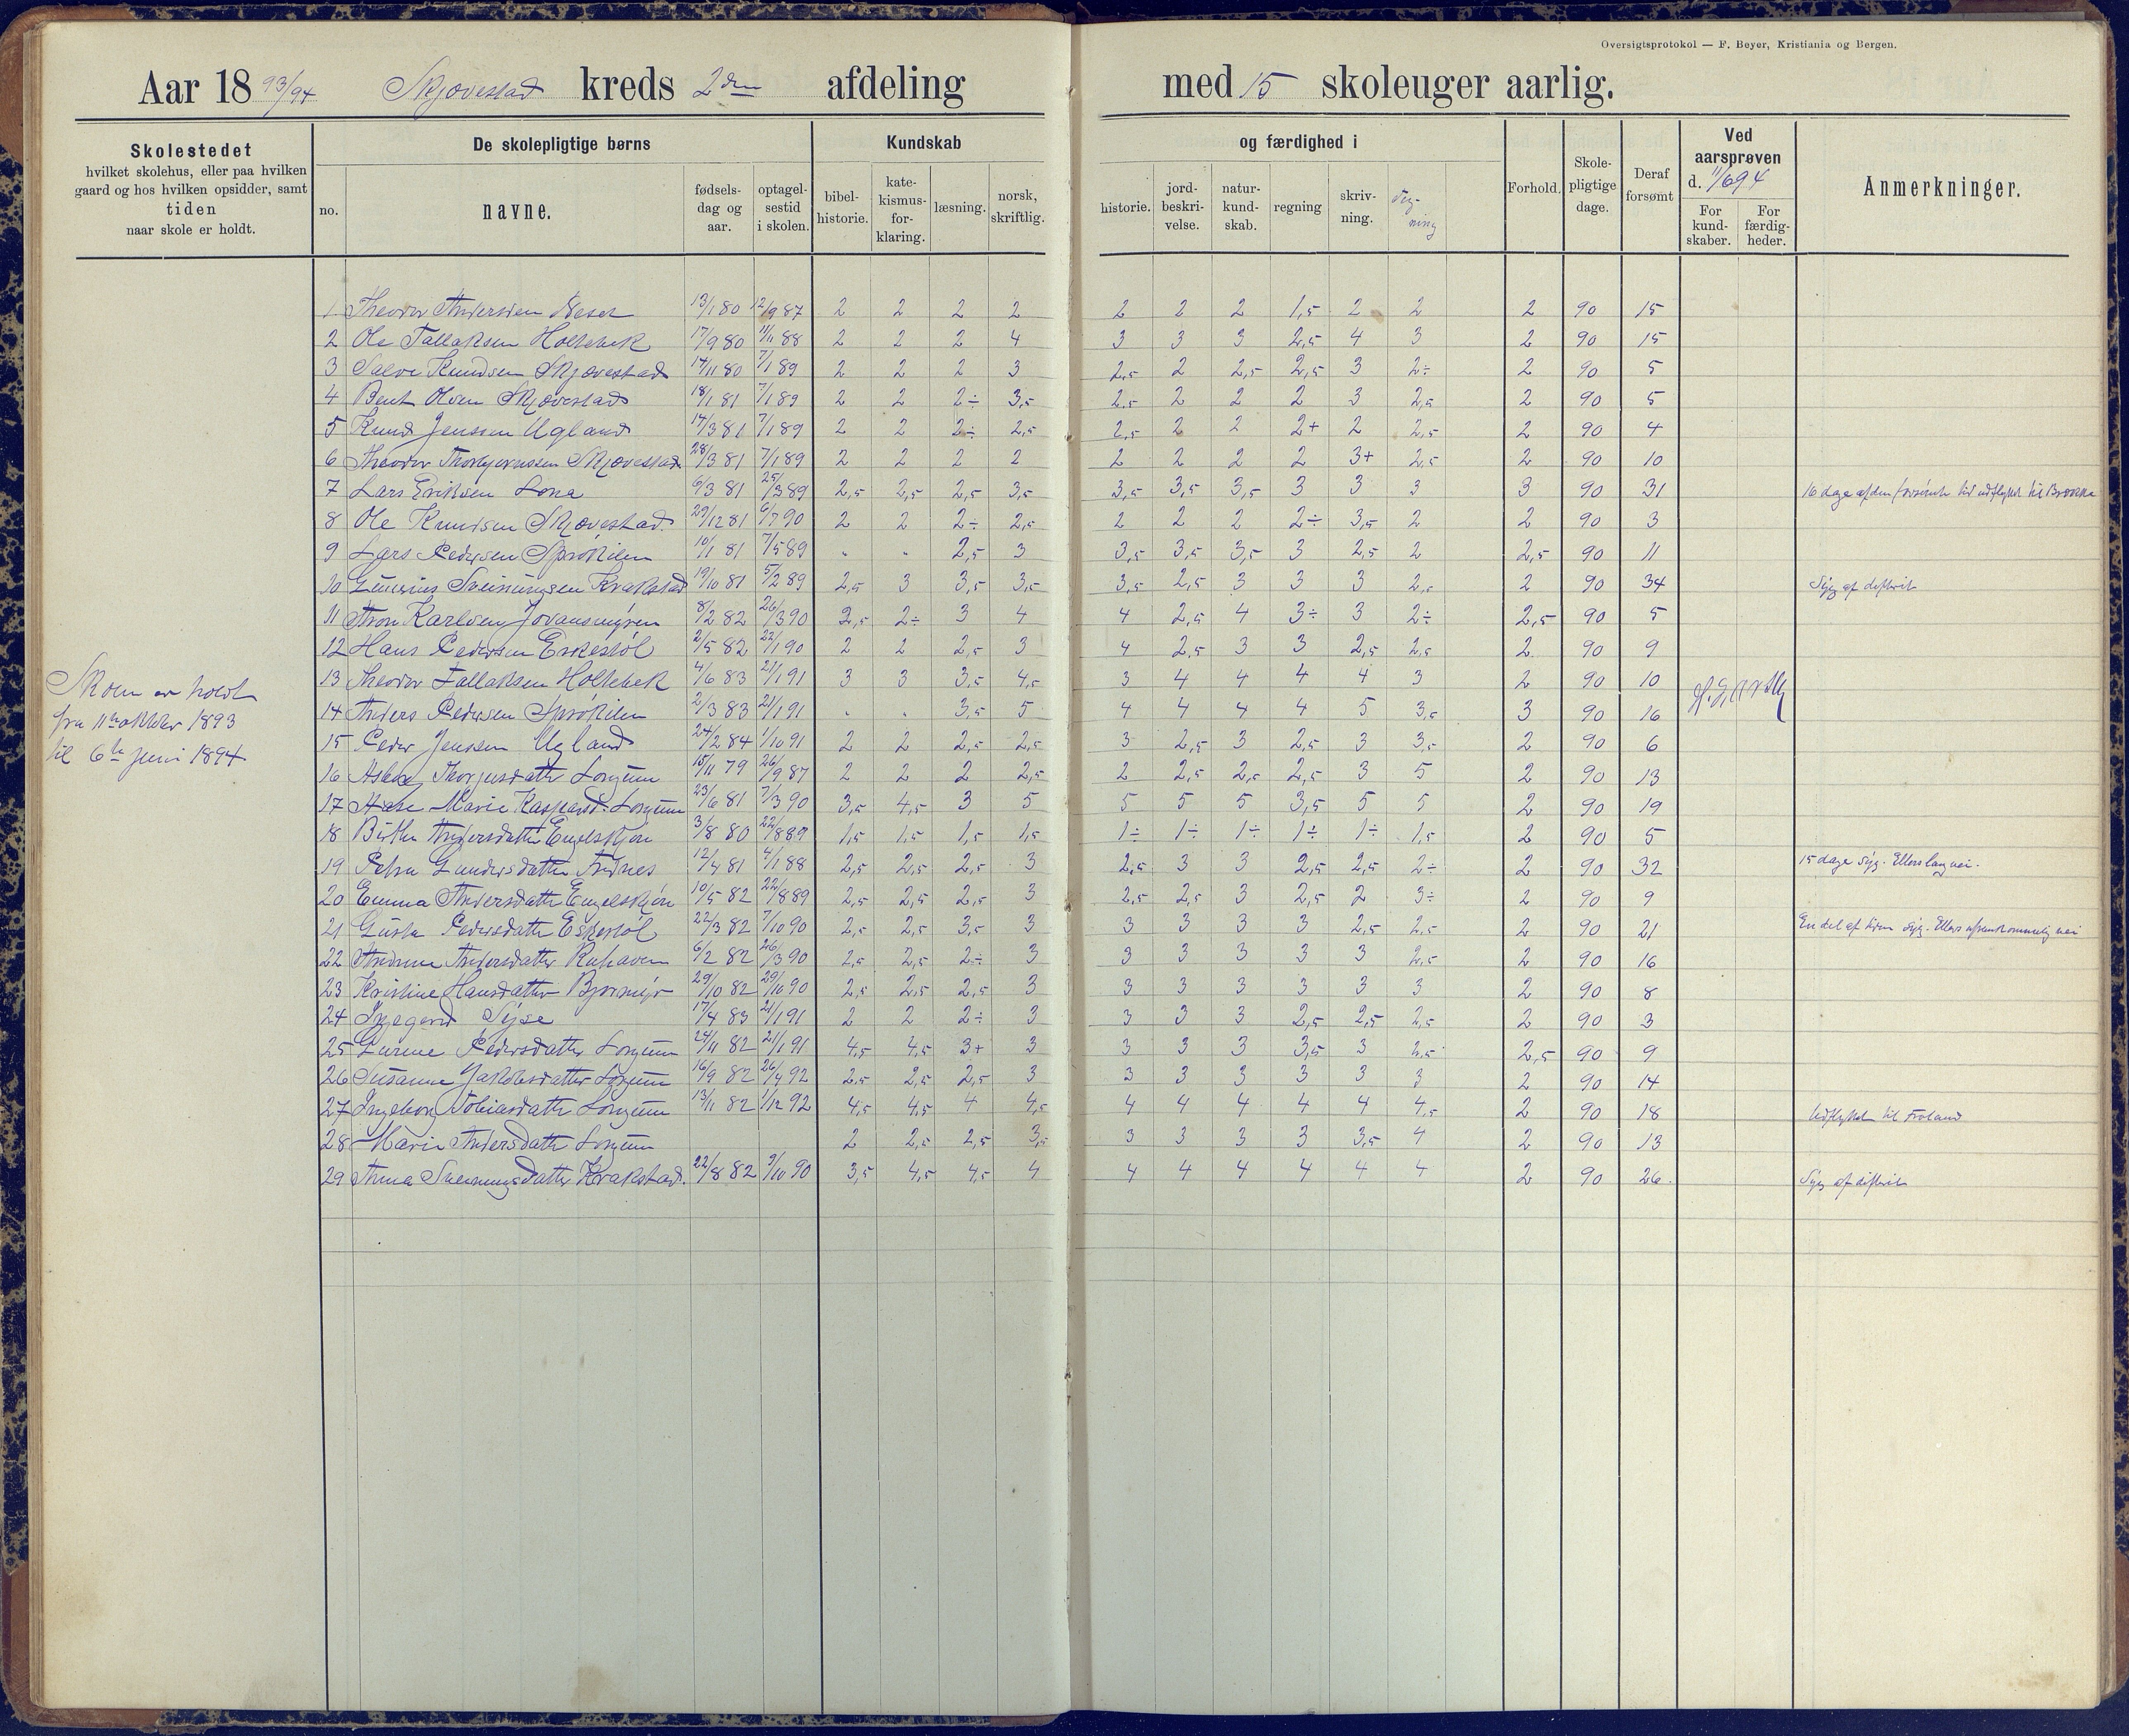 Oversigtsprotokol — F. Beyer, Kristiania og Bergen.
Aar 1893/94 Skjøvestad kreds 2den afdeling med 15 skoleuger aarlig.
Skolestedet
hvilket skolehus, eller paa hvilken
gaard og hos hvilken opsidder, samt
tiden
naar skole er holdt.
De skolepligtige børns
no. navne. fødsels-dag og aar. optagel-sestid i skolen.
Kundskab og færdighed i
bibel-historie. kate-kismus-for-klaring. læsning. norsk, skriftlig. historie. jord-beskri-velse. natur-kund-skab. regning skriv-ning. Teg-ning
Forhold. Skole-pligtige dage. Deraf forsømt
Ved aarsprøven d. 11/6 94
For kund-skaber. For færdig-heder.
Anmerkninger.
1 Theodor Andersen Neset 13/1 80 12/9 87 2 2 2 2 2 2 2 1,5 2 2 2 90 15
2 Ole Tallaksen Holtebek 17/9 80 11/11 88 2 2 2 4 3 3 3 2,5 4 3 2 90 15
3 Salve Knudsen Skjøvestad 14/11 80 7/1 89 2 2 2 3 2,5 2 2,5 2,5 3 2÷ 2 90 5
4 Bent Olsen Skjøvestad 18/1 81 7/1 89 2 2 2÷ 3,5 2,5 2 2 2 3 2,5 2 90 5
5 Knud Jenssen Ugland 14/3 81 7/1 89 2 2 2÷ 2,5 2,5 2 2 2+ 2 2,5 2 90 4
6 Theodor Thorbjørnssen Skjøvestad 28/3 81 7/1 89 2 2 2 2 2 2 2 2 3+ 2,5 2 90 10
7 Lars Eriksen Lona 6/3 81 25/3 89 2,5 2,5 2,5 3,5 3,5 3,5 3,5 3 3 3 3 90 31 16 dage af den forsømte tid udflyttet til
8 Ole Knudsen Skjøvestad 29/12 81 6/7 90 2 2 2÷ 2,5 2 2 2 2÷ 3,5 2 2 90 3
9 Lars Pedersen Sprøkilen 10/1 81 7/5 89 . . 2,5 3 3,5 3,5 3,5 3 2,5 2 2,5 90 11
10 Gunsius Sveinungsen Krakstad 19/10 81 5/2 89 2,5 3 3,5 3,5 3,5 2,5 3 3 3 2,5 2 90 34 Syg af difterit
11 Aron Karlsen Jovansmyren 8/2 82 26/3 90 2,5 2÷ 3 4 4 2,5 4 3÷ 3 2÷ 2,5 90 5
12 Hans Pedersen Eskestøl 2/5 82 22/1 90 2 2 2,5 3 4 2,5 3 3 2,5 2,5 2 90 9
13 Theodor Tallaksen Holtebek 4/6 83 21/1 91 3 3 3,5 4,5 3 4 4 4 4 3 2 90 10
14 Anders Pedersen Sprøkilen 2/3 83 21/1 91 . . 3,5 5 4 4 4 4 5 3,5 3 90 16
15 Peder Jenssen Ugland 24/2 84 1/10 91 2 2 2,5 2,5 3 2,5 3 2,5 3 3,5 2 90 6
16 Thorjusdatter Longum 15/11 79 26/9 87 2 2 2 2,5 2 2,5 2,5 2,5 3 5 2 90 13
17 Marie Kaspersd. Longum 23/6 81 7/3 90 3,5 4,5 3 5 5 5 5 3,5 5 5 2 90 19
18 Birthe Andersdatter Engelskjøn 3/8 80 22/8 89 1,5 1,5 1,5 1,5 1÷ 1÷ 1÷ 1÷ 1÷ 1,5 2 90 5
19 Petra Gundersdatter Ardnes 12/4 81 4/1 88 2,5 2,5 2,5 3 2,5 3 3 2,5 2,5 2÷ 2 90 32 15 dage syg. Ellers lang vei.
20 Emma Andersdatter Engelskjøn 10/5 82 22/8 89 2,5 2,5 2,5 3 2,5 2,5 3 2,5 2 3÷ 2 90 9
21 Gusta Pedersdatter Eskestøl 22/3 82 7/10 90 2,5 2,5 3,5 3 3 3 3 3 2,5 2,5 2 90 21 En del af tiden syg. Ellers ufremkommelig vei
22 Andrine Andersdatter 6/2 82 26/3 90 2,5 2,5 2÷ 3 3 3 3 3 3 2,5 2 90 16
23 Kristine Hansdatter Bjørmyr 29/10 82 29/10 90 2,5 2,5 2,5 3 3 3 3 3 3 3 2 90 8
24 Ingegerd Syse 17/4 83 21/1 91 2 2 2÷ 3 3 3 3 2,5 2,5 2,5 2 90 3
25 Gurine Pedersdatter Longum 24/11 82 21/1 91 4,5 4,5 3+ 3 3 3 3 3,5 3 2,5 2,5 90 9
26 Susanne Jakobsdatter Longum 16/9 82 26/4 92 2,5 2,5 2,5 3 3 3 3 3 3 3 2 90 14
27 Ingeborg Tobiasdatter Longum 13/11 82 1/12 92 4,5 4,5 4 4,5 4 4 4 4 4 4,5 2 90 18 Udflyttet til Froland
28 Marie Andersdatter Longum 2 2,5 2,5 3,5 3 3 3 3 3,5 4 2 90 13
29 Anna Sveinungsdatter Krakstad. 22/8 82 3/10 90 3,5 4,5 4,5 4 4 4 4 4 4 4 2 90 26. Syg af difterit
Skolen er holdt
fra 11te oktober 1893
til 6te juni 1894.